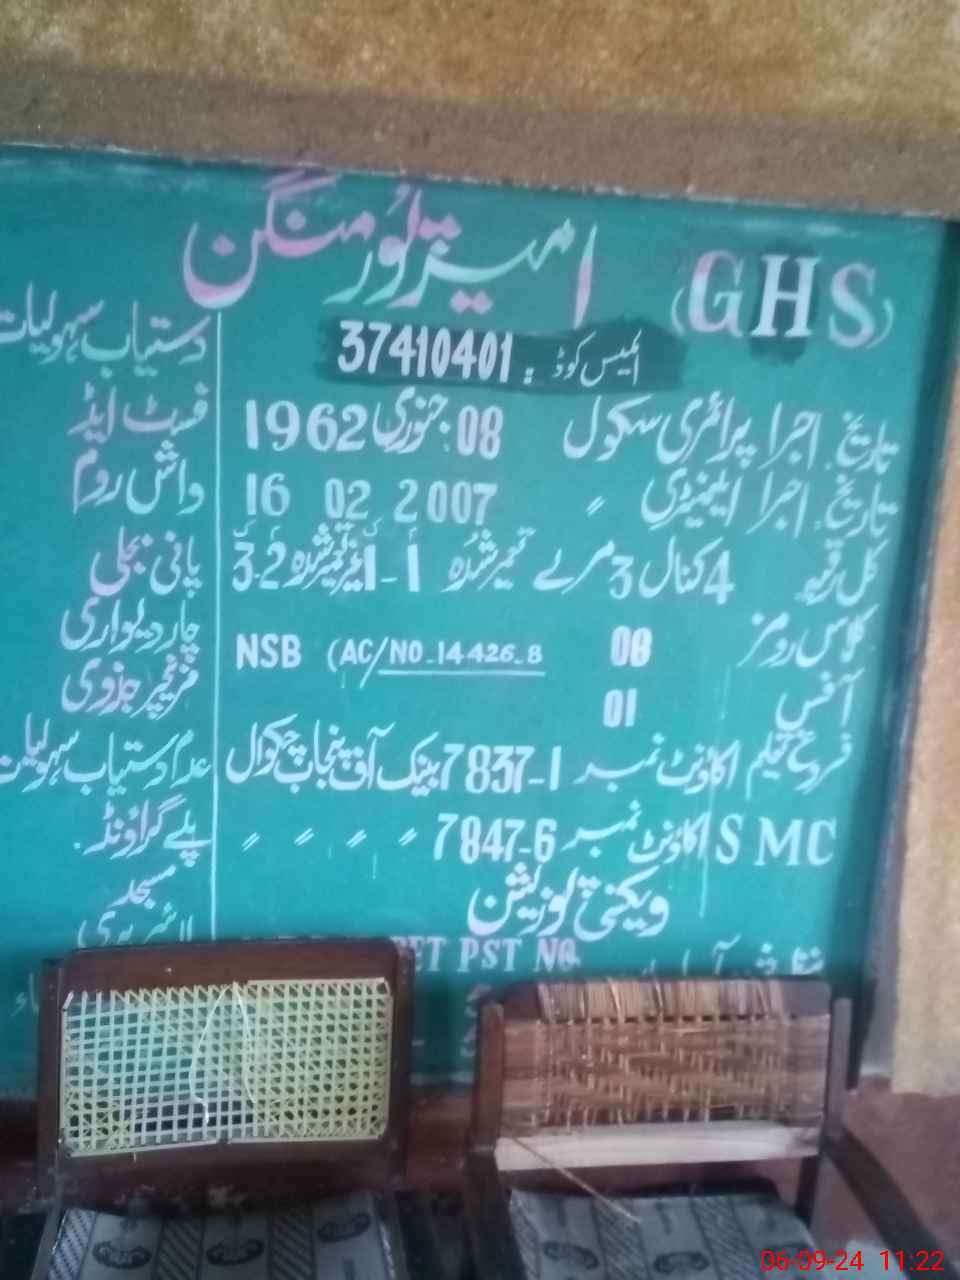 (GHS) امیرپور منگن
ایمیس کوڈ : 37410401
تاریخ اجرا پرائمری سکول 08 جنوری 1962
تاریخ اجرا ایلیمنٹری 〃 16 02 2007
کل رقبہ 4 کنال 3 مرلے تعمیر شدہ 1-1 غیر تعمیر شدہ 3-2
کلاس رومز 08
NSB (AC/NO-14426-8
آفس 01
فروغ تعلیم اکاؤنٹ نمبر 7837-1 بینک آف پنجاب چکوال
SMC اکاؤنٹ نمبر 7847-6 〃 〃 〃 〃
ویکنسی پوزیشن
PST NO.
دستیاب سہولیات
فسٹ ایڈ
واش روم
پانی بجلی
چار دیواری
فرنیچر جزوی
عدم دستیاب سہولیات
پلے گراؤنڈ
مسجد
لائبریری
06-09-24 11:22